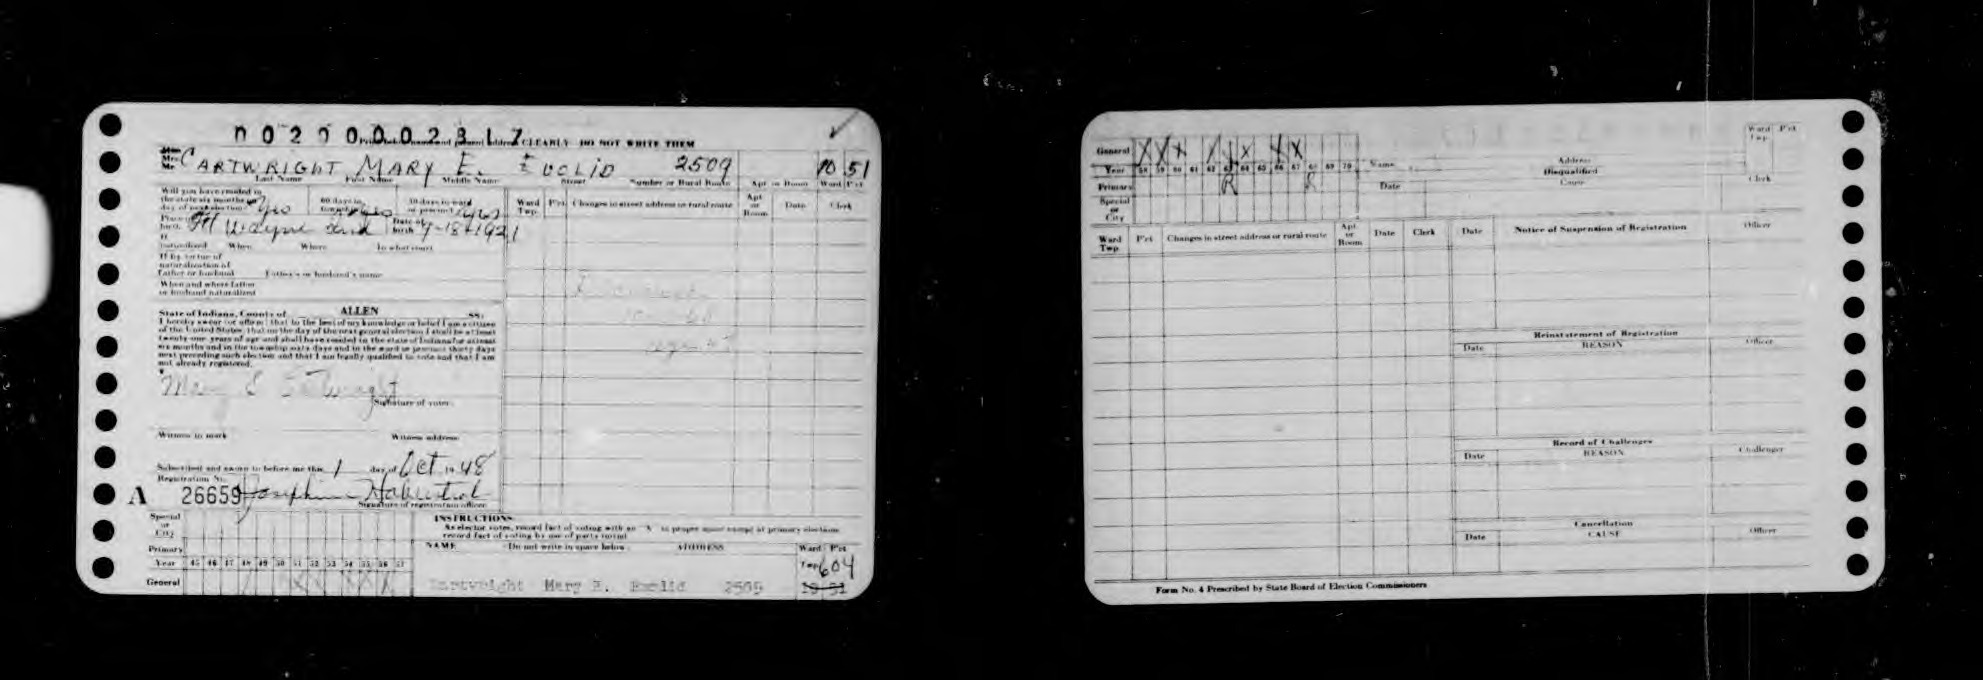 Print CLEARLY DO NOT WRITE THEM
Mrs. CARTWRIGHT MARY E. EUCLID 2509 10 51
Last Name First Name Middle Name Street Number or Rural Route Apt or Room Ward P'ct
Will you have resided in
the state six months on
day of next election Yes 60 days in township Yes 30 days in ward or precinct Yes
Place of birth Ft Wayne Ind Date of birth 9-18-1921
If naturalized When Where In what court
If by virtue of
naturalization of
Father or husband Father's or husband's name
When and where father
or husband naturalized
Ward Twp. P'ct Changes in street address or rural route Apt or Room Date Clerk
State of Indiana, County of ALLEN SS:
I hereby swear (or affirm) that to the best of my knowledge or belief I am a citizen
of the United States, that on the day of the next general election I shall be at least
twenty-one years of age and shall have resided in the state of Indiana for at least
six months and in the township sixty days and in the ward or precinct thirty days
next preceding such election and that I am legally qualified to vote and that I am
not already registered.
Mary E Cartwright
Signature of voter
Witness to mark Witness address
Subscribed and sworn to before me this 1 day of Oct 19 48
Registration No.
A 26659 Josephine
Signature of registration officer
Special or City
Primary
Year 45 46 47 48 49 50 51 52 53 54 55 56 57
General
INSTRUCTIONS
As elector votes, record fact of voting with an "X" in proper space except at primary elections
record fact of voting by use of party initial
NAME Do not write in space below ADDRESS Ward Twp P'ct
604
Cartwright Mary E. Euclid 2509 10 51
General X X X X X X X
Year 58 59 60 61 62 63 64 65 66 67 68 69 70
Primary R R
Special or City
Name Address Ward Twp. P'ct
Disqualified
Date Cause Clerk
Ward Twp. P'ct Changes in street address or rural route Apt or Room Date Clerk
Date Notice of Suspension of Registration Officer
Reinstatement of Registration
Date REASON Officer
Record of Challenges
Date REASON Challenger
Cancellation
Date CAUSE Officer
Form No. 4 Prescribed by State Board of Election Commissioners